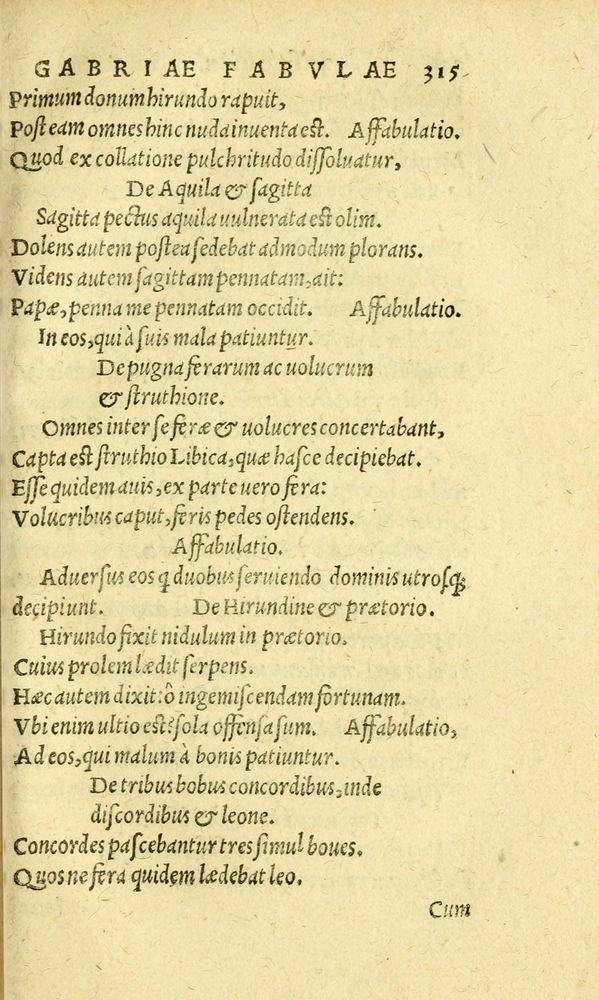 GABRIAE FABVLAE 315
Primum donum hirundo rapuit,
Post eam omnes hinc nuda inuenta est. Affabulatio.
Quod ex collatione pulchritudo dissoluatur,
De Aquila & sagitta
Sagitta pectus aquila uulnerata est olim.
Dolens autem postea sedebat admodum plorans.
Videns autem sagittam pennatam, ait:
Papæ, penna me pennatam occidit. Affabulatio.
In eos, qui à suis mala patiuntur.
De pugna ferarum ac uolucrum
& struthione.
Omnes inter se feræ & uolucres concertabant,
Capta est struthio Libica, quæ hasce decipiebat.
Esse quidem auis, ex parte uero fera:
Volucribus caput, feris pedes ostendens.
Affabulatio.
Aduersus eos q̃ duobus seruiendo dominis utrosq;
decipiunt. De Hirundine & prætorio.
Hirundo fixit nidulum in prætorio.
Cuius prolem lædit serpens.
Hæc autem dixit: ô ingemiscendam fortunam.
Vbi enim ultio est? sola offensa sum. Affabulatio,
Ad eos, qui malum à bonis patiuntur.
De tribus bobus concordibus, inde
discordibus & leone.
Concordes pascebantur tres simul boues.
Quos ne fera quidem lædebat leo.
Cum